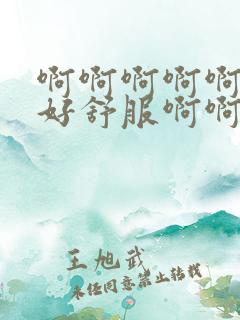 啊啊啊啊啊
好舒服啊啊
王旭武
未经同意禁止转载